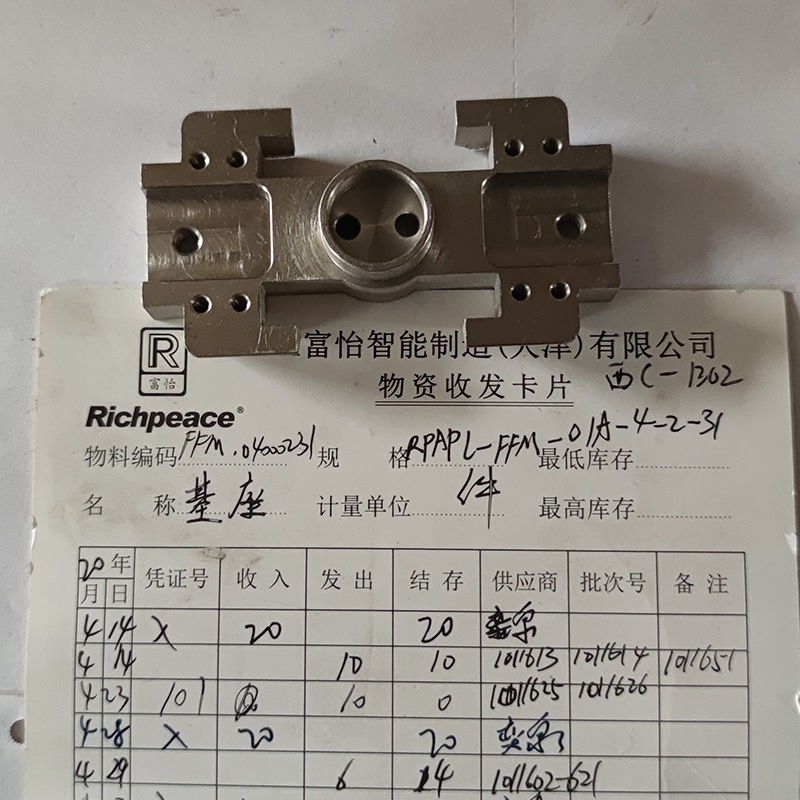 R
富怡
富怡智能制造(天津)有限公司
物资收发卡片
西C-1302
Richpeace®
物料编码 FFM.04000231 规格 RPAPL-FFM-01A-4-2-31 最低库存
名称 基座 计量单位 件 最高库存
20年 凭证号 收入 发出 结存 供应商 批次号 备注
月 日
4 14 X 20 20
4 14 10 10 1011613 1011614 1011651
4 23 101 10 0 1011625 1011626
4 28 X 20 20
4 29 6 14 1011602-621